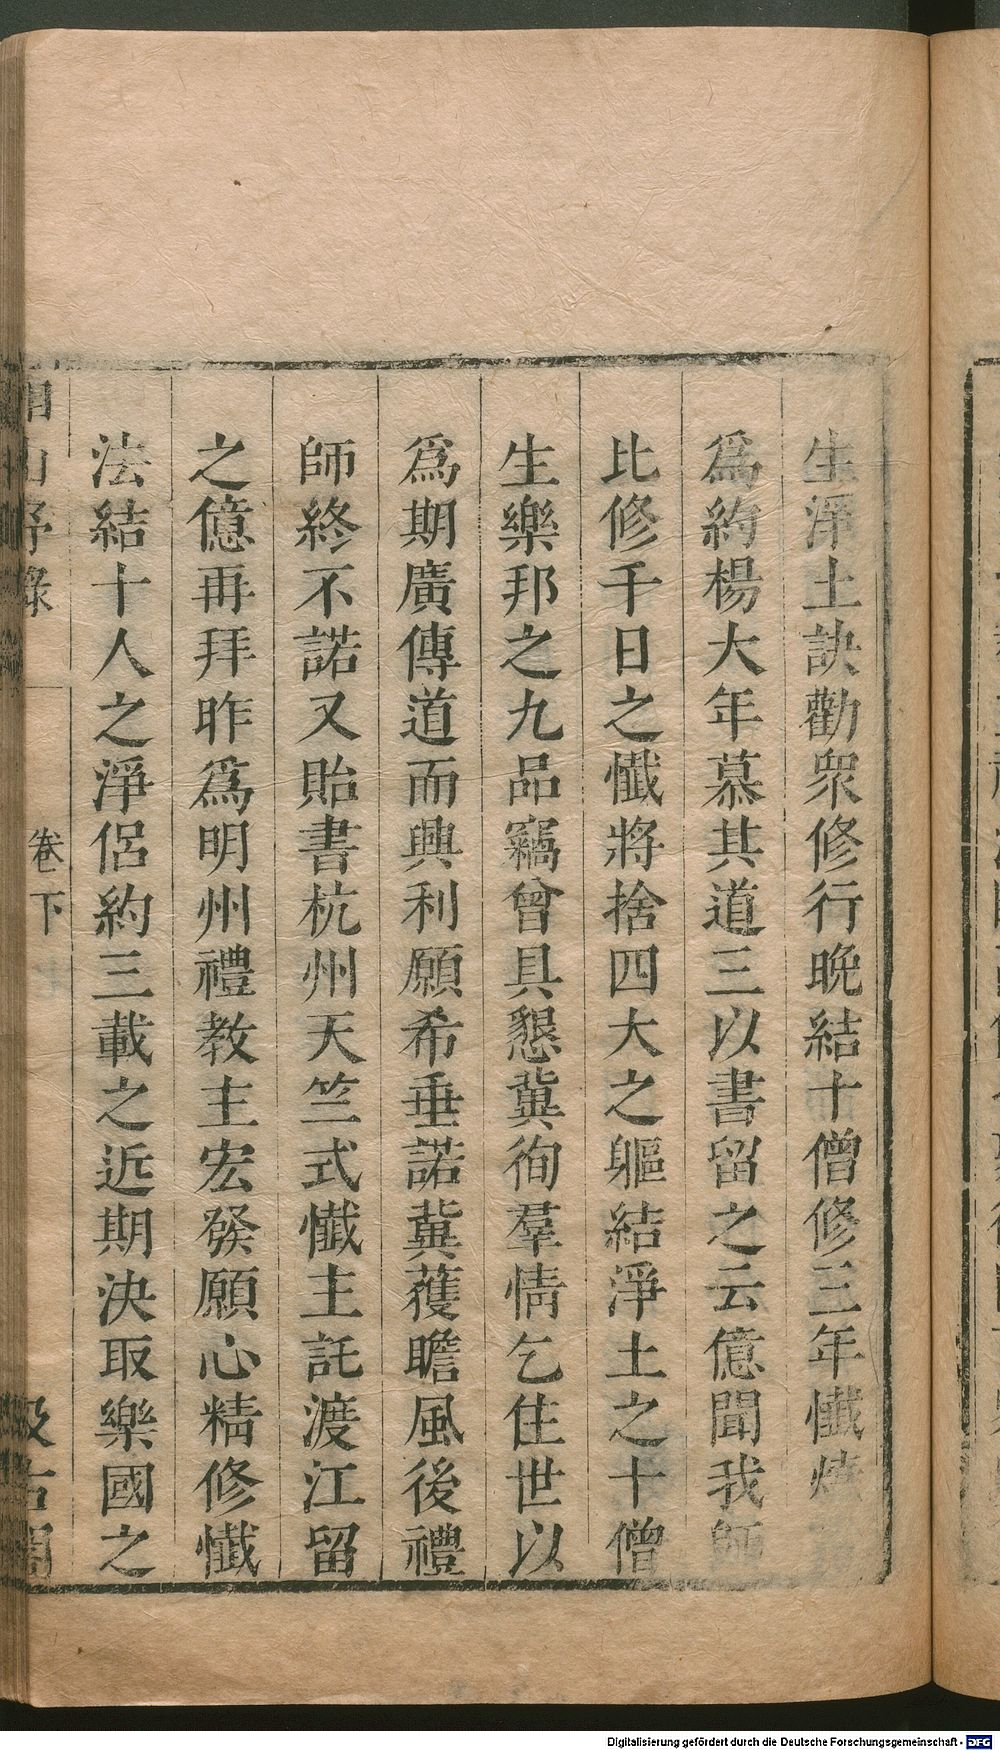 生淨土訣勸衆修行晩結十僧修三年懺燒
爲約楊大年慕其道三以書留之云億聞我師
比修千日之懺將捨四大之軀結淨土之十僧
生樂邦之九品竊曾具懇冀徇羣情乞住世以
爲期廣傳道而興利願希垂諾冀蒦瞻風後禮
師終不諾又貽書杭州天竺式懺主託渡江留
之億再拜昨爲明州禮教主宏發願心精修懺
法結十人之淨侶約三載之近期決取樂國之
湘山野錄
卷下
汲古閣
Digitalisierung gefördert durch die Deutsche Forschungsgemeinschaft - DFG